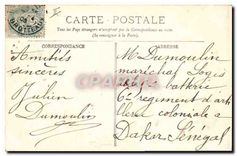 CARTE POSTALE
Tous les Pays étrangers n'acceptent pas la Correspondance au recto
(Se renseigner à la Poste).
CORRESPONDANCE
Amitiés
sincères
Julien
Dumoulin
ADRESSE
M. Dumoulin
maréchal Logis
batterie
6e régiment d'art
coloniale à
Dakar Sénégal